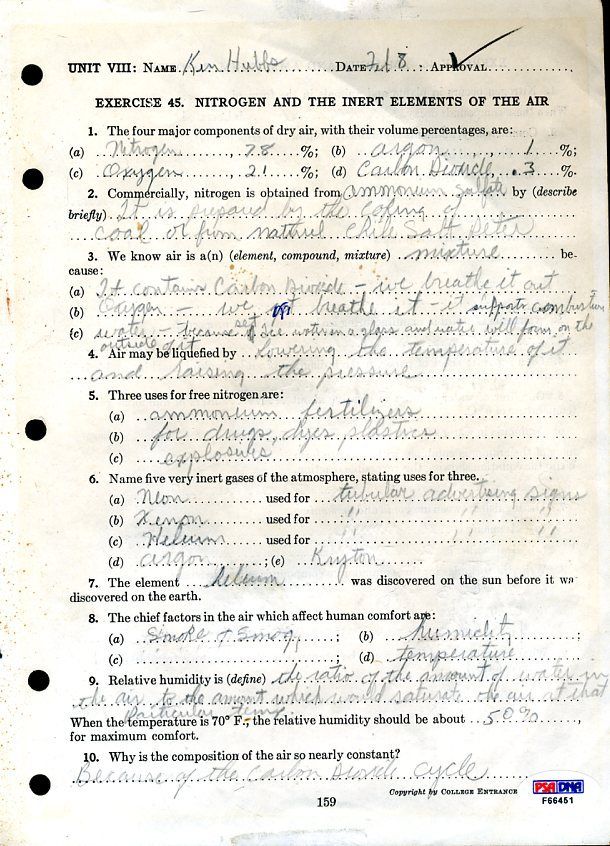 UNIT VIII: NAME Ken Hubbs DATE 2/8 APPROVAL
EXERCISE 45. NITROGEN AND THE INERT ELEMENTS OF THE AIR
1. The four major components of dry air, with their volume percentages, are:
(a) Nitrogen, 78 %; (b) argon, 1 %;
(c) Oxygen, 21 %; (d) Carbon Dioxide, .3 %.
2. Commercially, nitrogen is obtained from ammonium sulfate by (describe
briefly) It is prepared by the coking of
coal or from natural Chile Salt peter
3. We know air is a(n) (element, compound, mixture) mixture be-
cause:
(a) It contains Carbon Dioxide - we breathe it out
(b) Oxygen - we breathe it - it supports combustion
(c) water - because set ice water in a glass and water will form on the
outside of it
4. Air may be liquefied by lowering the temperature of it
and raising the pressure
5. Three uses for free nitrogen are:
(a) ammonium fertilizers
(b) for drugs, dyes, plastics
(c) explosives
6. Name five very inert gases of the atmosphere, stating uses for three.
(a) Neon used for tubular advertising signs
(b) Xenon used for " " "
(c) Helium used for " " "
(d) argon ; (e) Kryton
7. The element helium was discovered on the sun before it wa
discovered on the earth.
8. The chief factors in the air which affect human comfort are:
(a) Smoke & Smog ; (b) humidity ;
(c) ; (d) temperature
9. Relative humidity is (define) the ratio of the amount of water in
the air to the amount which would saturate the air at that
particular temp.
When the temperature is 70° F., the relative humidity should be about 50%,
for maximum comfort.
10. Why is the composition of the air so nearly constant?
Because of the Carbon Dioxide cycle
Copyright by COLLEGE ENTRANCE
159
PSA DNA
F66451